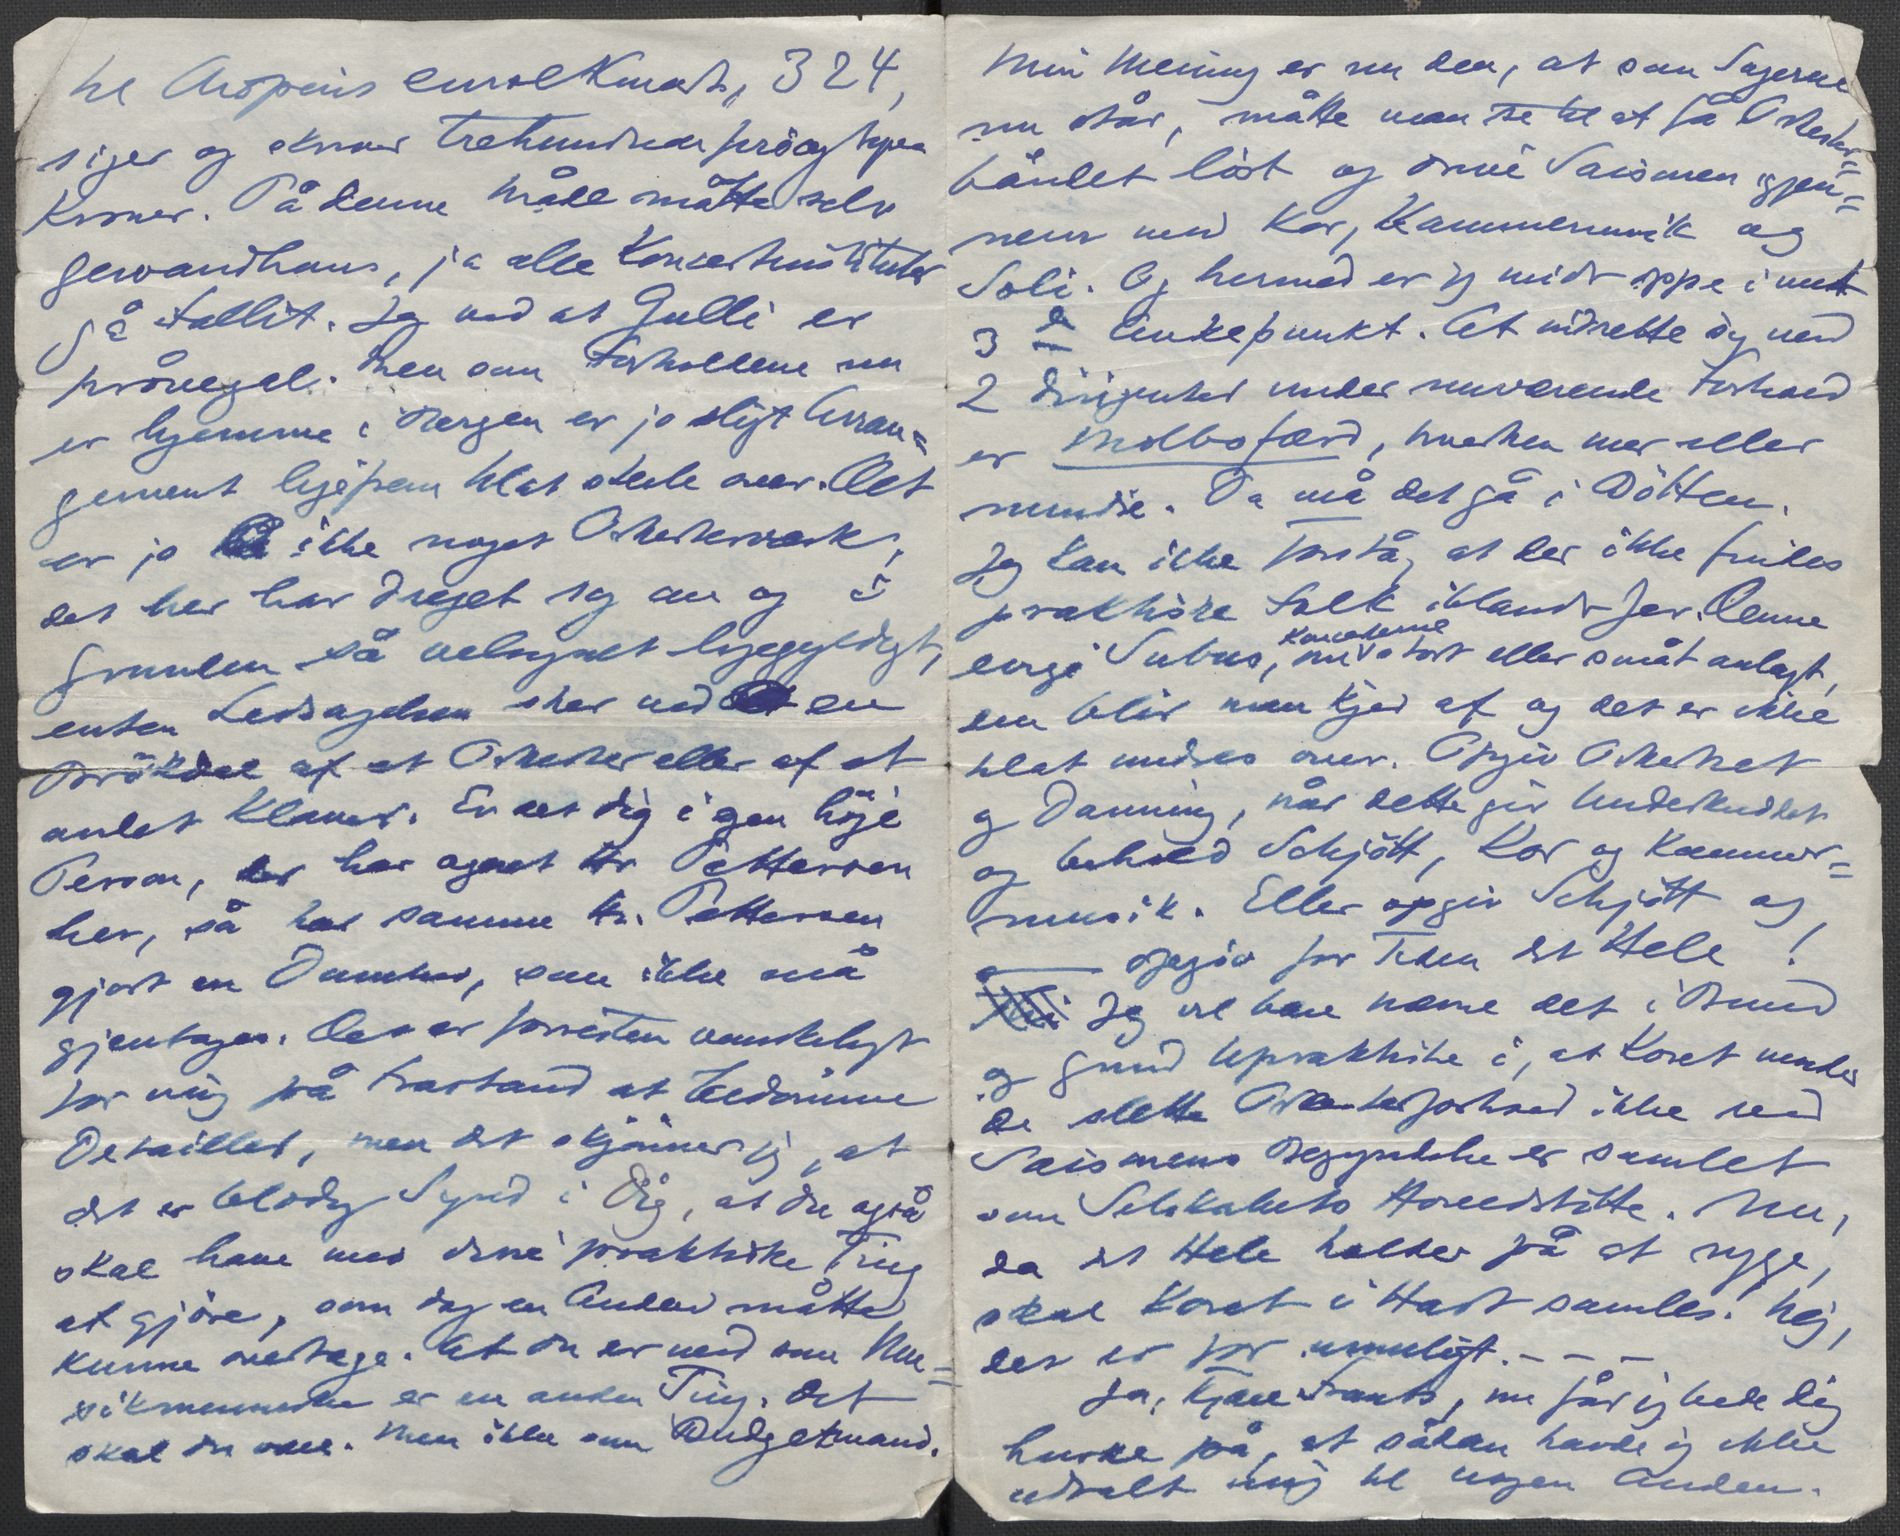 til Chopins emol Konsert, 324,
siger og skriver trehundrede fire og tyve
Kroner. På denne Måde måtte selv
Gewandhaus, ja alle Koncertinstituter
gå fallit. Jeg ved at Gulli er
prövegal. Men som Forholdene nu
er hjemme i Bergen er jo sligt Arran=
gement ligefrem til at skele over. Det
er jo ikke noget Orkesterværk,
det her har drejet sig om og i
Grunden så velsignet ligegyldigt,
enten Ledsagelsen sker ved en
Brökdel af et Orkester eller af et
andet Klaver. Er det dig i egen höje
Person, der har ageret Hr Pettersen
her, så har samme Hr. Pettersen
gjort en Dumhed, som ikke må
gjentages. Det er forresten vanskeligt
for mig på Frastand at bedömme
Detailler, men det skjönner jeg, at
det er blodig Synd i Dig, at du også
skal have med disse praktiske Ting
at gjöre, som dog en Anden måtte
kunne overtage. At du er med som Mu=
sikmenneske er en anden Ting. Det
skal du være. Men ikke som Budgetmand.
Min Mening er nu den, at som Sagerne
nu står, måtte man se til at få Orkester=
båndet löst og drive Saisonen igjen=
nem med Kor, Kammermusik og
Soli. Og hermed er jeg midt oppe i mit
3 die Ankepunkt. At indrette sig med
2 Dirigenter under nuværende Forhold
er Molbofærd, hverken mer eller
mindre. Da må det gå i Dötten.
Jeg kan ikke forstå, at der ikke findes
praktiske Folk iblandt Jer. Denne
evige Subus, Koncerterne
nu stort eller småt anlagt,
den blir man kjed af og det er ikke
til at undres over. Opgiv Orkestret
og Danning, når dette gir Underskuddet
og behold Schjött, Kor og Kammer=
musik. Eller opgiv Schjött og
og — opgiv for Tiden det Hele!
Jeg vil bare nævne det i Bund
og Grund Upraktiske i, at Koret under
de slette Orkesterforhold ikke ved
Saisonens Begyndelse er samlet
som Selskabets Hovedstötte. Nu,
da det Hele holder på at ryge,
skal Koret i Hast samles. Nej,
det er for umuligt. - - -
Ja, kjære Frants, nu får jeg bede dig
huske på, at sådan havde jeg ikke
udtalt mig til nogen Anden.